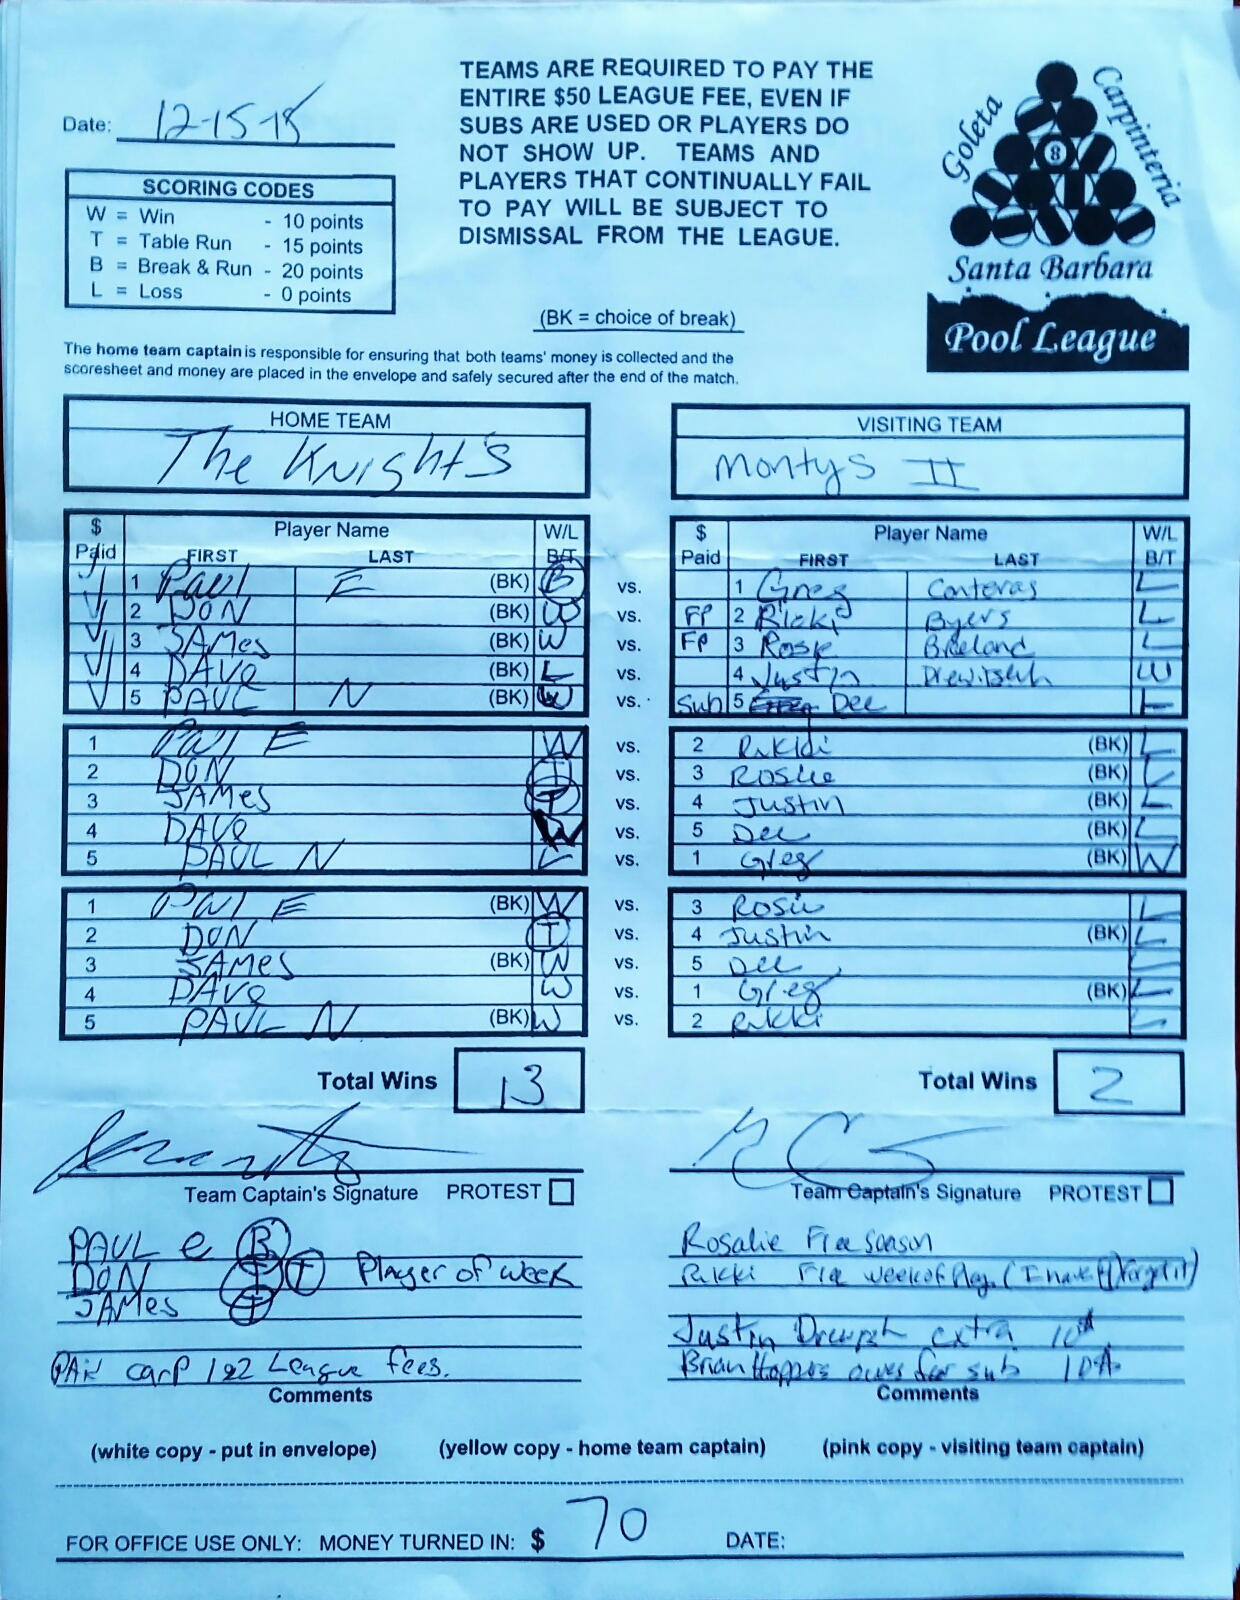 Date: 12-15-18
TEAMS ARE REQUIRED TO PAY THE
ENTIRE $50 LEAGUE FEE, EVEN IF
SUBS ARE USED OR PLAYERS DO
NOT SHOW UP. TEAMS AND
PLAYERS THAT CONTINUALLY FAIL
TO PAY WILL BE SUBJECT TO
DISMISSAL FROM THE LEAGUE.
Goleta
Carpinteria
8
Santa Barbara
Pool League
SCORING CODES
W = Win - 10 points
T = Table Run - 15 points
B = Break & Run - 20 points
L = Loss - 0 points
(BK = choice of break)
The home team captain is responsible for ensuring that both teams' money is collected and the
scoresheet and money are placed in the envelope and safely secured after the end of the match.
HOME TEAM
The Knight's
VISITING TEAM
Montys II
$ Paid Player Name W/L
FIRST LAST B/T
$ Paid Player Name W/L
FIRST LAST B/T
1 PAUL E (BK) B vs. 1 Greg Conteras L
2 DON (BK) W vs. FP 2 Rikki Byers L
3 JAMes (BK) W vs. FP 3 Rosie Breland L
4 DAVe (BK) L vs. 4 Justin W
5 PAUL N (BK) W vs. Sub 5 Dee L
1 PAUL E W vs. 2 Rikki (BK) L
2 DON T vs. 3 Rosie (BK) L
3 JAMes T vs. 4 Justin (BK) L
4 DAVe W vs. 5 Dee (BK) L
5 PAUL N L vs. 1 Greg (BK) W
1 PAUL E (BK) W vs. 3 Rosie L
2 DON T vs. 4 Justin (BK) L
3 JAMes (BK) W vs. 5 Dee L
4 DAVe W vs. 1 Greg (BK) L
5 PAUL N (BK) W vs. 2 Rikki L
Total Wins 13
Total Wins 2
Team Captain's Signature PROTEST
Team Captain's Signature PROTEST
PAUL e B
DON T T Player of week
JAMes T
PAid carp 1&2 League fees.
Comments
Rosalie Free season
Rikki Free week of Play. (I have
Justin extra 10
Brian Hoppers owes for sub 10
Comments
(white copy - put in envelope) (yellow copy - home team captain) (pink copy - visiting team captain)
FOR OFFICE USE ONLY: MONEY TURNED IN: $ 70 DATE: